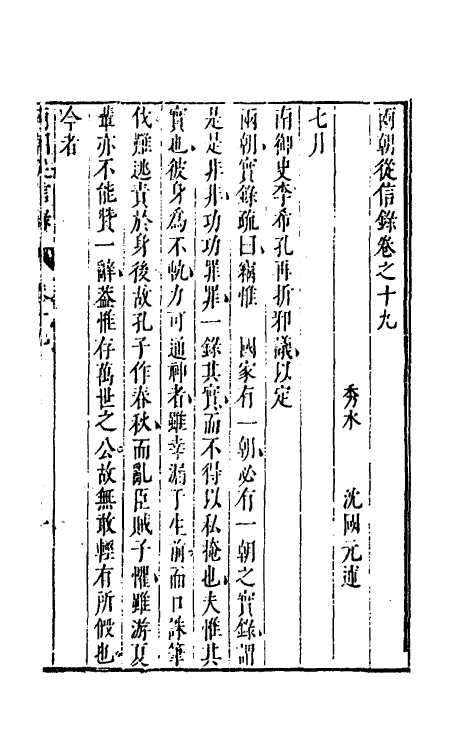 兩朝從信錄卷之十九
秀水 沈國元述
七月
南御史李希孔再折邪議以定
兩朝實錄疏曰竊惟 國家有一朝必有一朝之實錄謂
是是非非功功罪罪一錄其實而不得以私掩也夫惟其
實也彼身為不軌力可通神者雖幸漏于生前而口誅筆
伐難逃責於身後故孔子作春秋而亂臣賊子懼雖游夏
輩亦不能贊一辭葢惟存萬世之公故無敢輕有所假也
今者
兩朝從信錄 卷十九